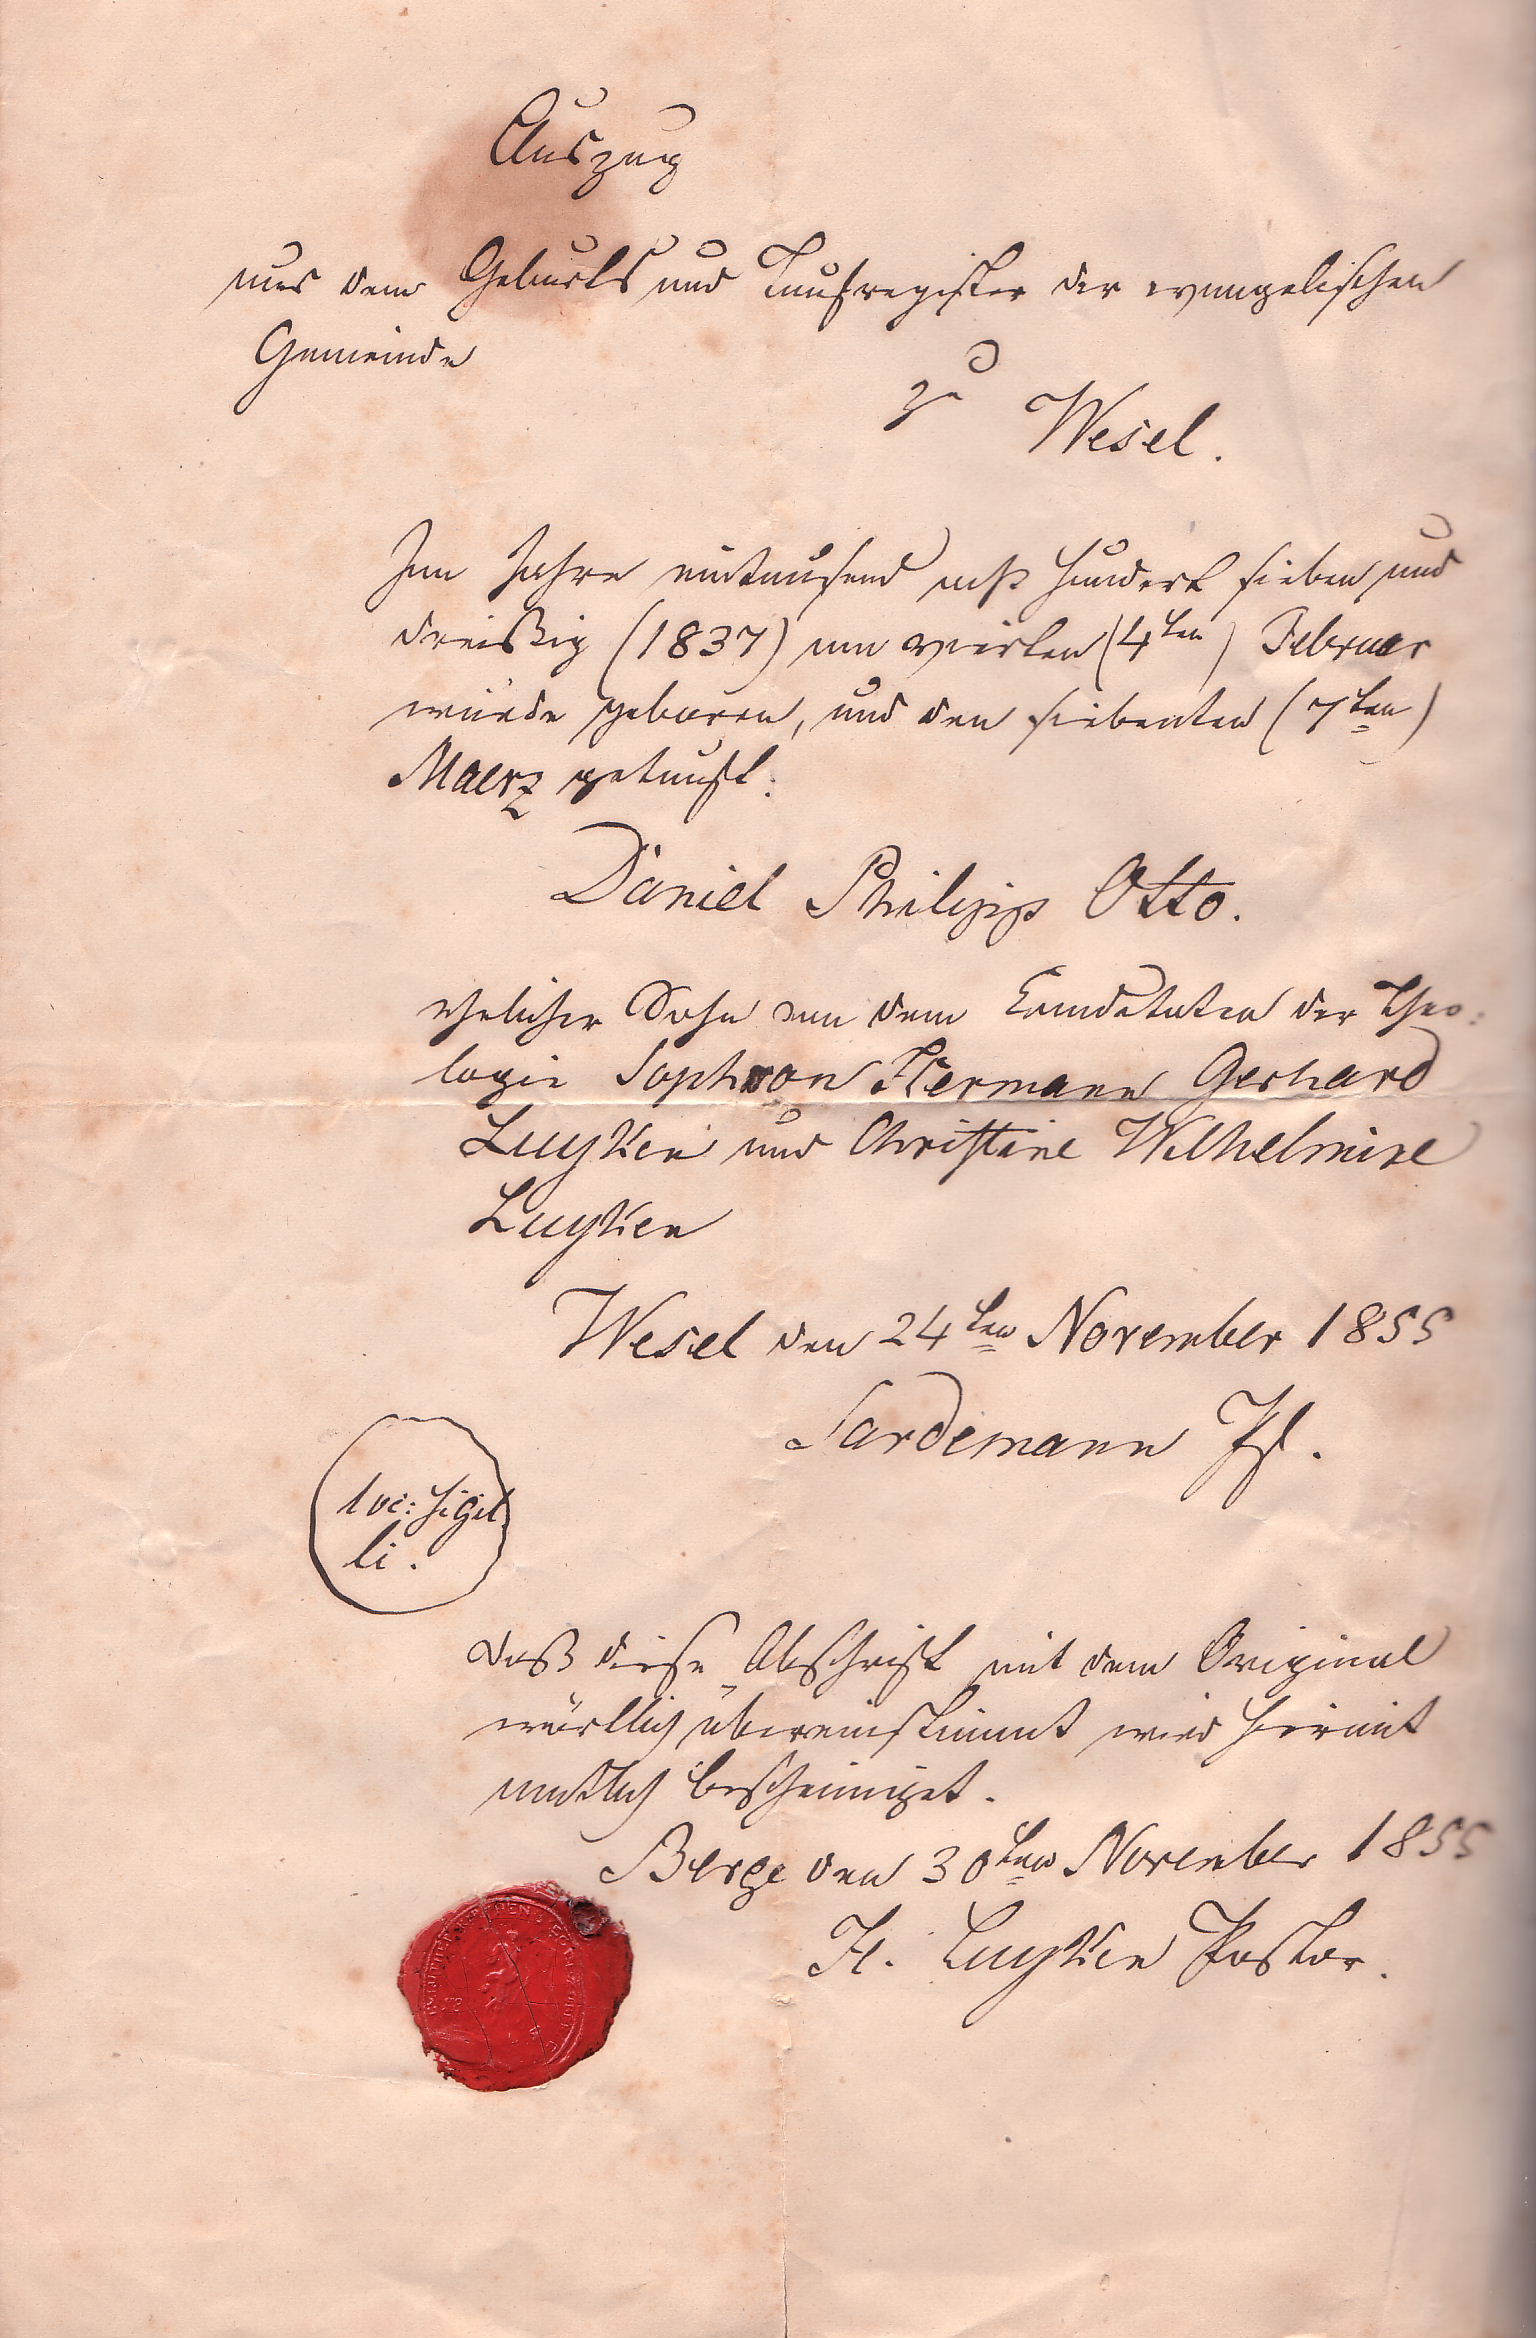 Auszug
aus dem Geburts und Taufregister der evangelischen
Gemeinde
zu Wesel.
Im Jahre eintausend acht hundert sieben und
dreißig (1837) am vierten (4ten) Februar
wurde geboren, und den siebenten (7ten)
Maerz getauft:
Daniel Philipp Otto.
ehelicher Sohn von dem Candidaten der Theo:
logie Sophron Hermann Gerhard
Luyken und Christine Wilhelmine
Luyken
Wesel den 24ten November 1855
Sardemann Pf.
loc: sigil
li.
Daß diese Abschrift mit dem Original
wörtlich übereinstimmt wird hiermit
amtlich bescheiniget.
Berge den 30ten November 1855
H. Luyken Pastor.